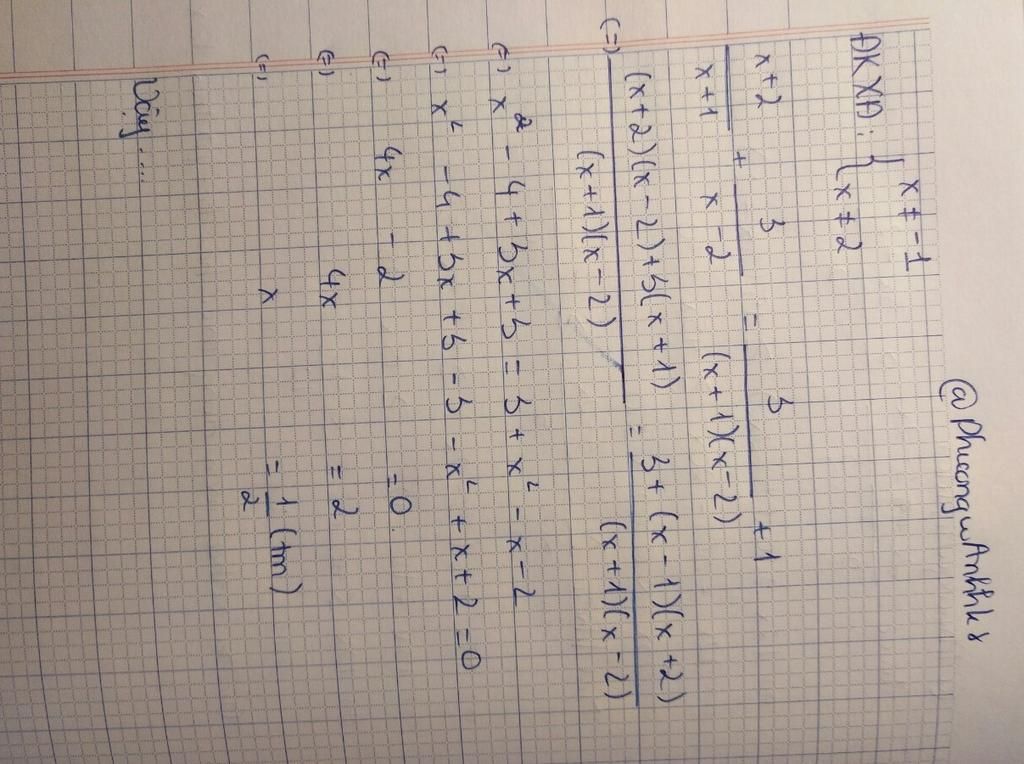 ĐKXĐ: { x ≠ -1
x ≠ 2
x+2 / x+1 + 3 / x-2 = 3 / (x+1)(x-2) + 1
(=) (x+2)(x-2)+3(x+1) / (x+1)(x-2) = 3+(x-1)(x+2) / (x+1)(x-2)
(=) x² - 4 + 3x + 3 = 3 + x² - x - 2
(=) x² - 4 + 3x + 3 - 3 - x² + x + 2 = 0
(=) 4x - 2 = 0.
(=) 4x = 2
(=) x = 1/2 (tm)
Vậy ....